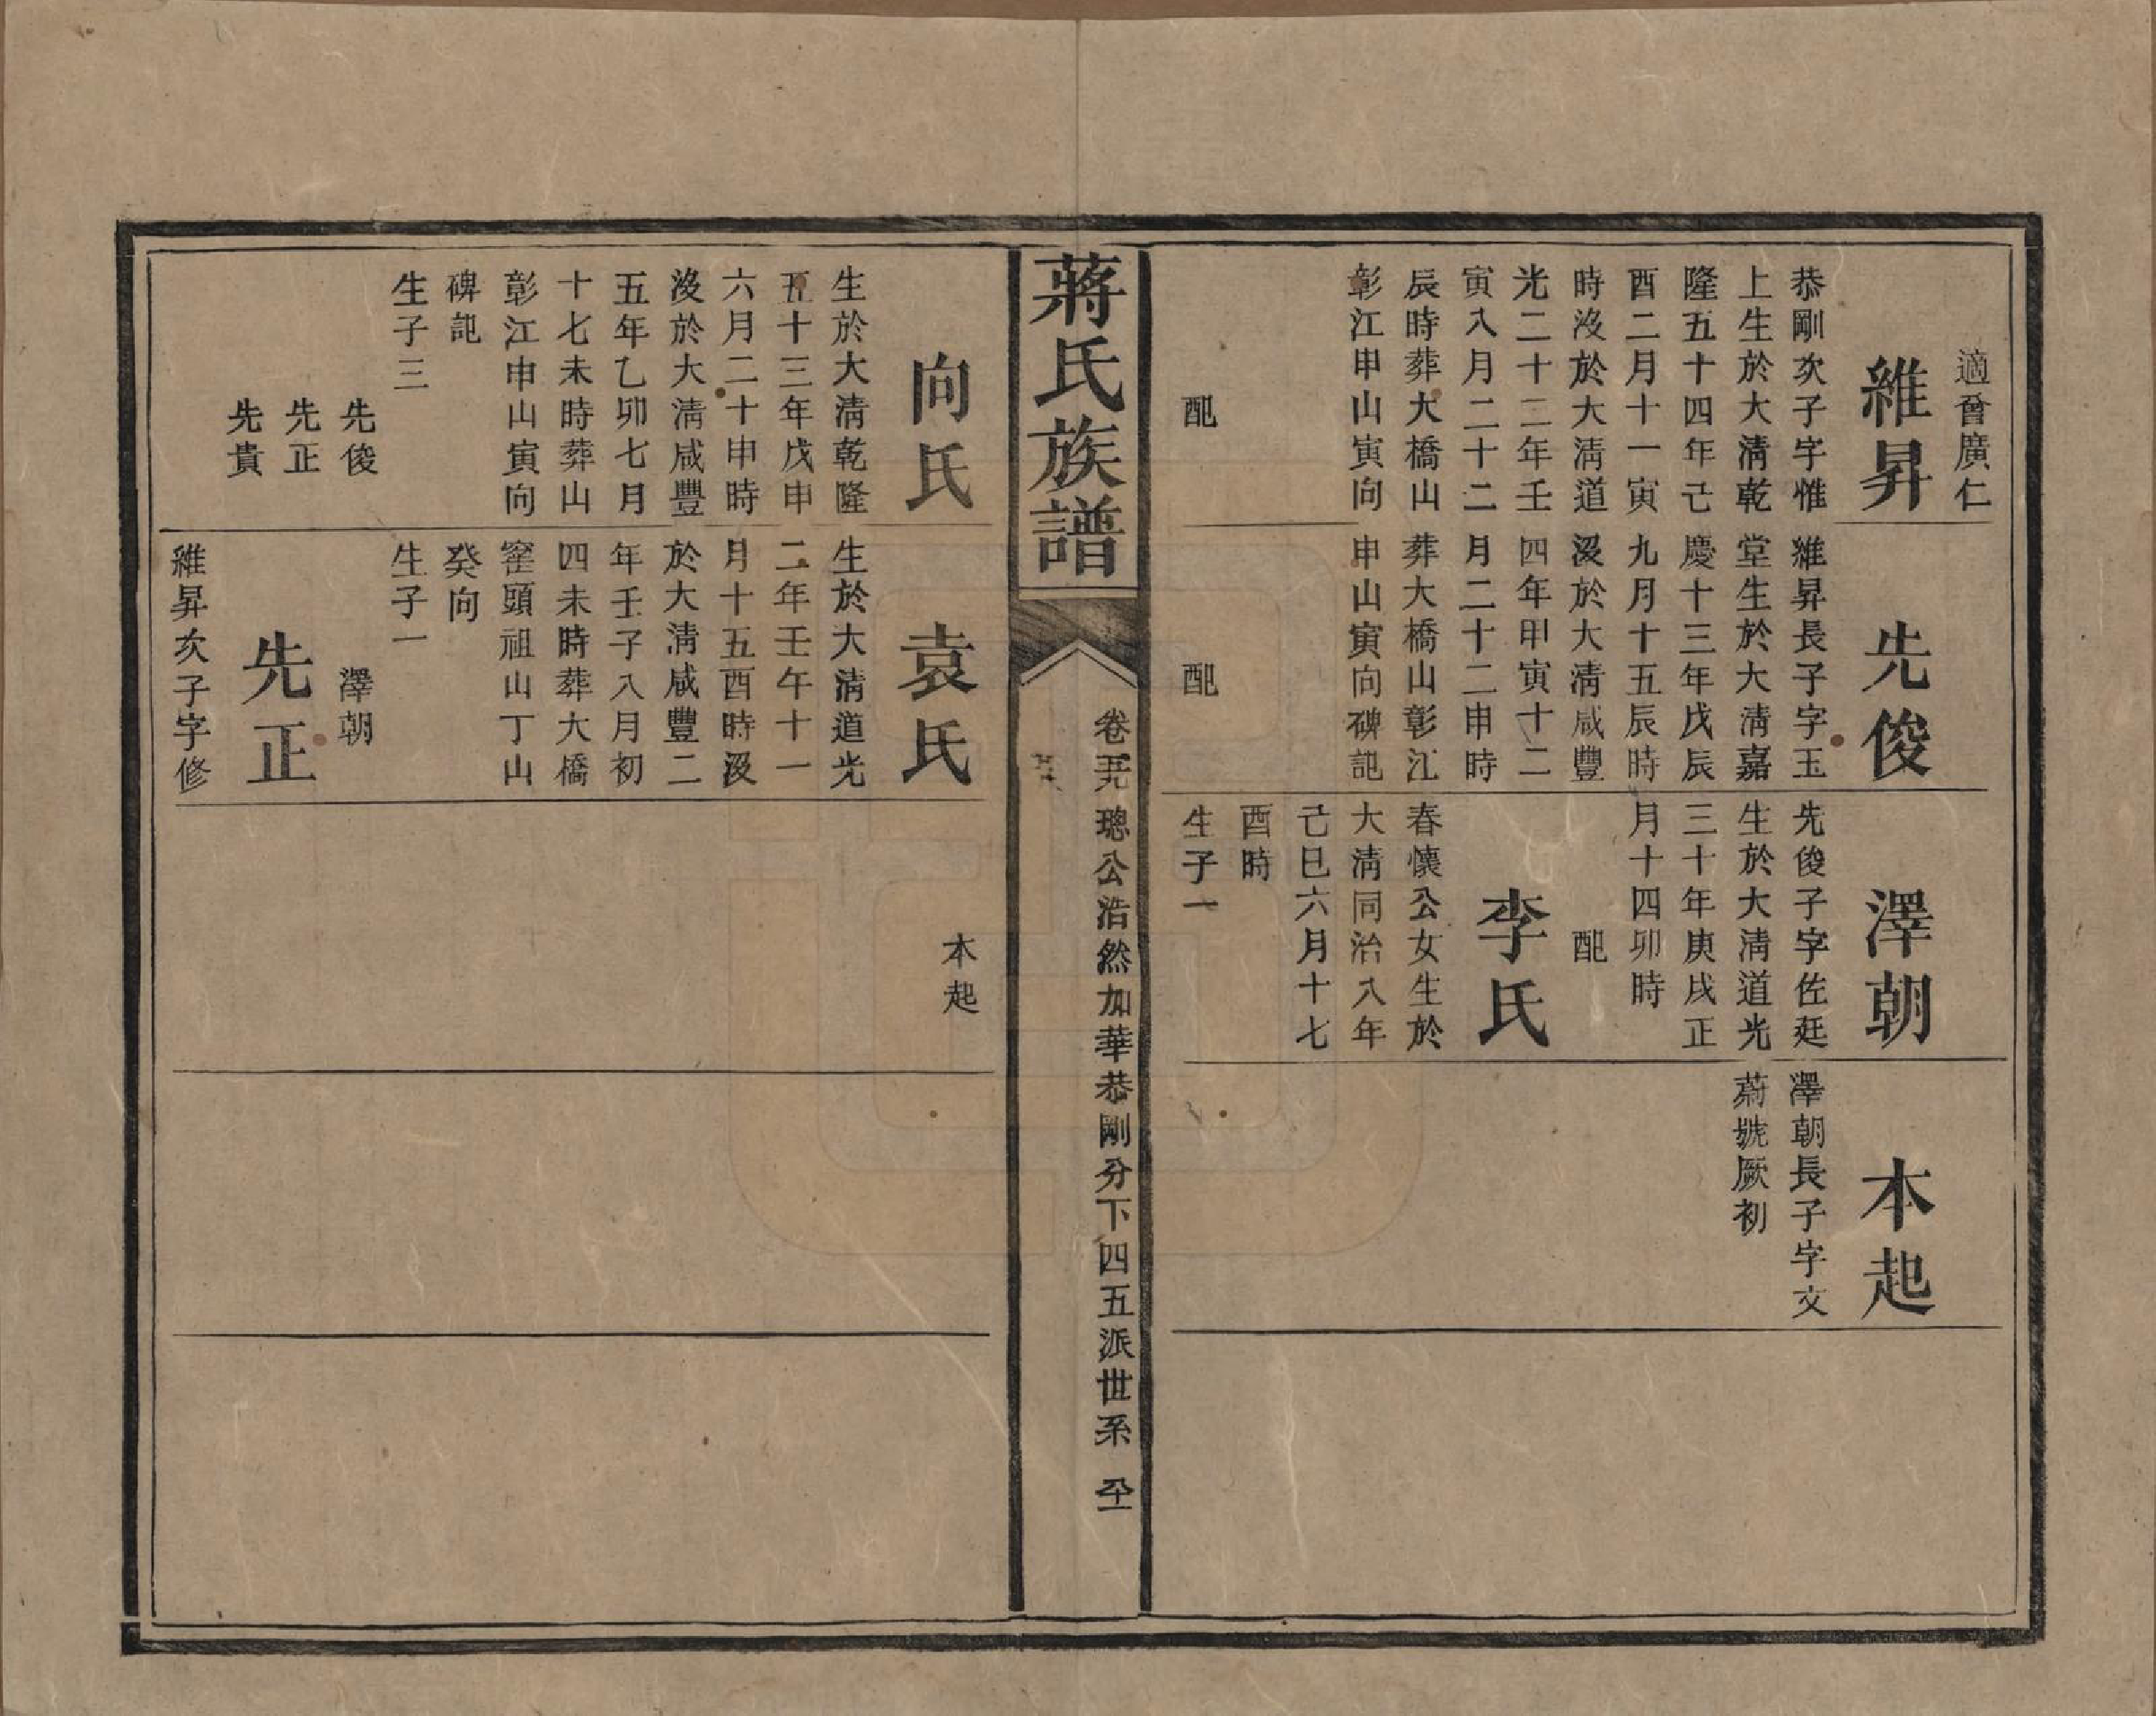 適曾廣仁
維昇
恭剛次子字惟
上生於大淸乾
隆五十四年己
酉二月十一寅
時沒於大淸道
光二十二年壬
寅八月二十二
辰時葬大橋山
彰江申山寅向
配
先俊
維昇長子字玉
堂生於大淸嘉
慶十三年戊辰
九月十五辰時
沒於大淸咸豐
四年甲寅十二
月二十二申時
葬大橋山彰江
申山寅向碑記
配
澤朝
先俊子字佐廷
生於大淸道光
三十年庚戌正
月十四卯時
配
李氏
春懷公女生於
大淸同治八年
己巳六月十七
酉時
生子一
本起
澤朝長子字文
蔚號厥初
蔣氏族譜
卷 璁公浩然加華恭剛分下四五派世系
向氏
生於大淸乾隆
五十三年戊申
六月二十申時
沒於大淸咸豐
五年乙卯七月
十七未時葬山
彰江申山寅向
碑記
生子三
先俊
先正
先貴
袁氏
生於大淸道光
二年壬午十一
月十五酉時沒
於大淸咸豐二
年壬子八月初
四未時葬大橋
窰頭祖山丁山
癸向
生子一
澤朝
先正
維昇次子字修
本起